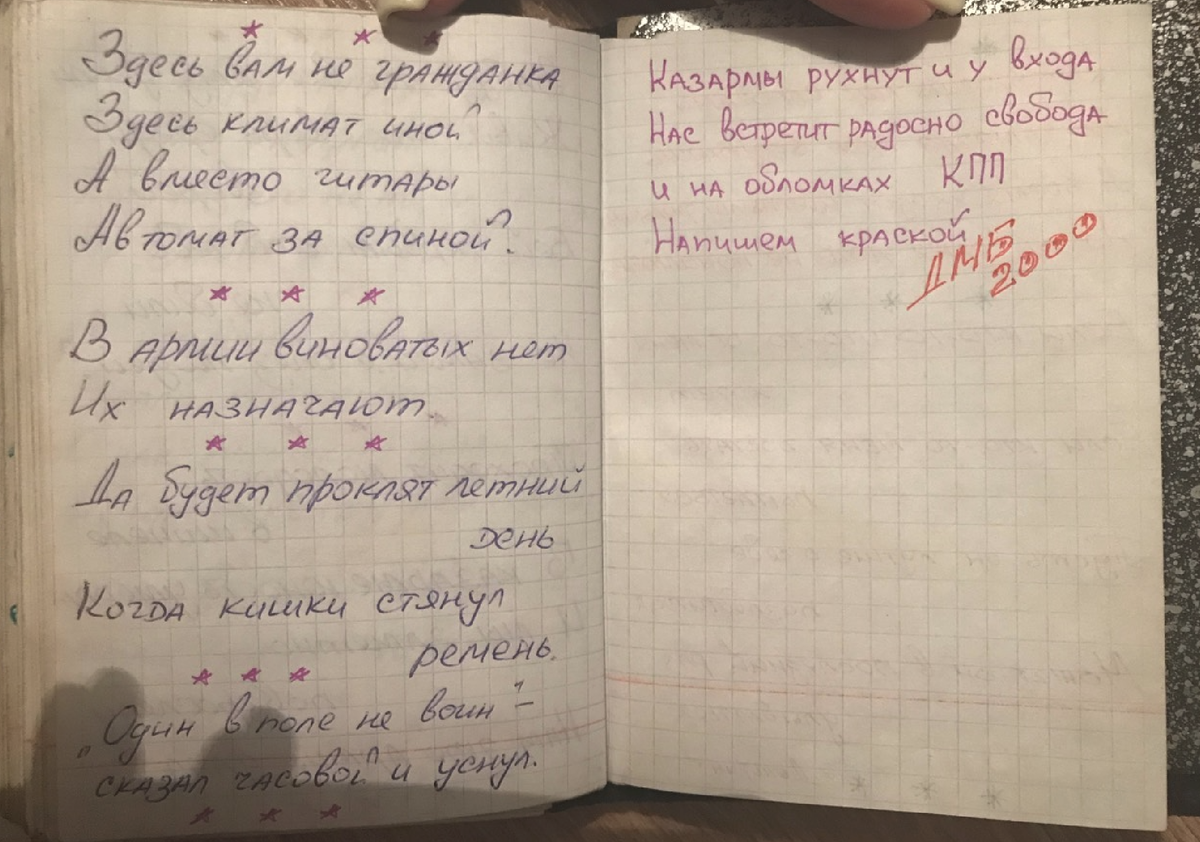 * * *
Здесь вам не гражданка
Здесь климат иной
А вместо гитары
Автомат за спиной.
* * *
В армии виноватых нет
Их назначают.
* * *
Да будет проклят летний
день
Когда кишки стянул
ремень.
* * *
„Один в поле не воин" –
сказал часовой и уснул.
* * *
Казармы рухнут и у входа
Нас встретит радосно свобода
и на обломках КПП
Напишем краской
ДМБ
2000